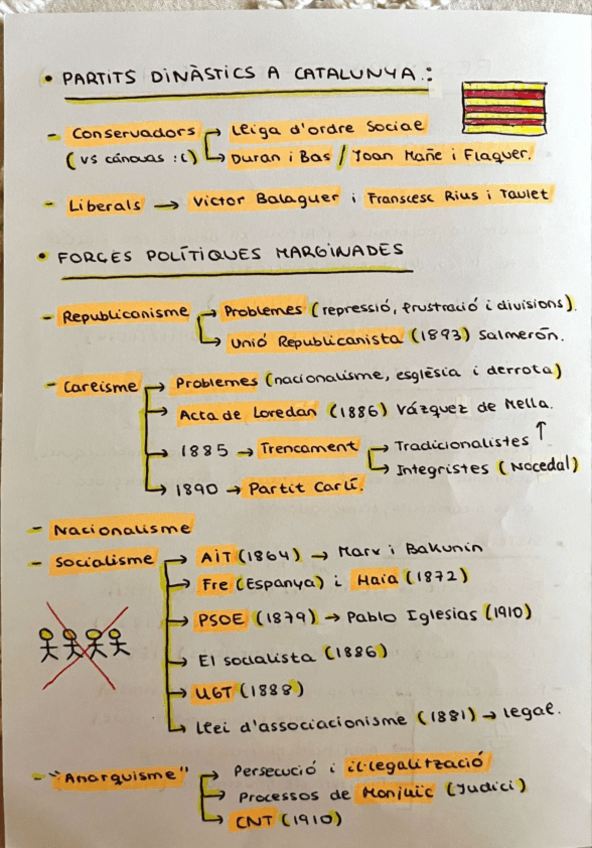 • PARTITS DINÀSTICS A CATALUNYA.:
- Conservadors → Lliga d'ordre Social
(vs cánovas :() → Duran i Bas / Joan Mañe i Flaquer.
- Liberals → Victor Balaguer i Franscesc Rius i Taulet
• FORCES POLÍTIQUES MARGINADES
- Republicanisme → Problemes (repressió, frustració i divisions).
→ Unió Republicanista (1893) Salmerón.
- Carlisme → Problemes (nacionalisme, esglèsia i derrota)
→ Acta de Loredán (1886) Vázquez de Mella.
→ 1885 → Trencament → Tradicionalistes ↑
→ Integristes (Nocedal)
→ 1890 → Partit Carlí.
- Nacionalisme
- Socialisme → AiT (1864) → Marx i Bakunin
→ Fre (Espanya) i Haia (1872)
→ PSOE (1879) → Pablo Iglesias (1910)
→ El socialista (1886)
→ UGT (1888)
→ Llei d'associacionisme (1881) → legal.
- "Anarquisme" → Persecució i il·legalització
→ Processos de Monjuïc (Judici)
→ CNT (1910)